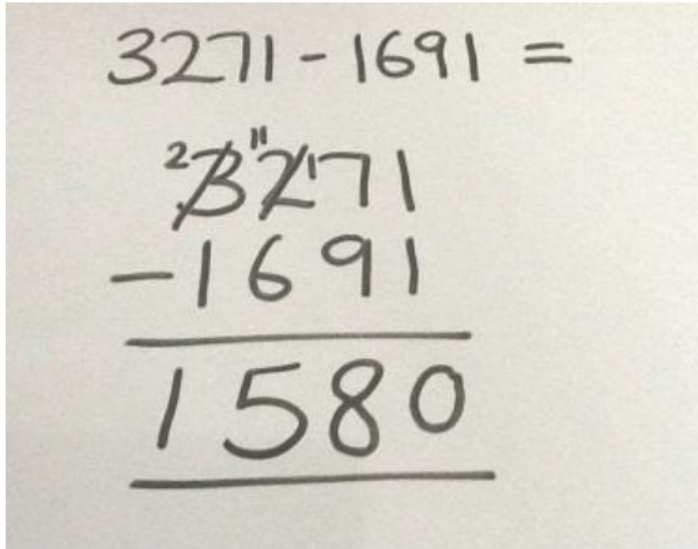 3271 - 1691 =
2 11 1
3271
- 1691
1580